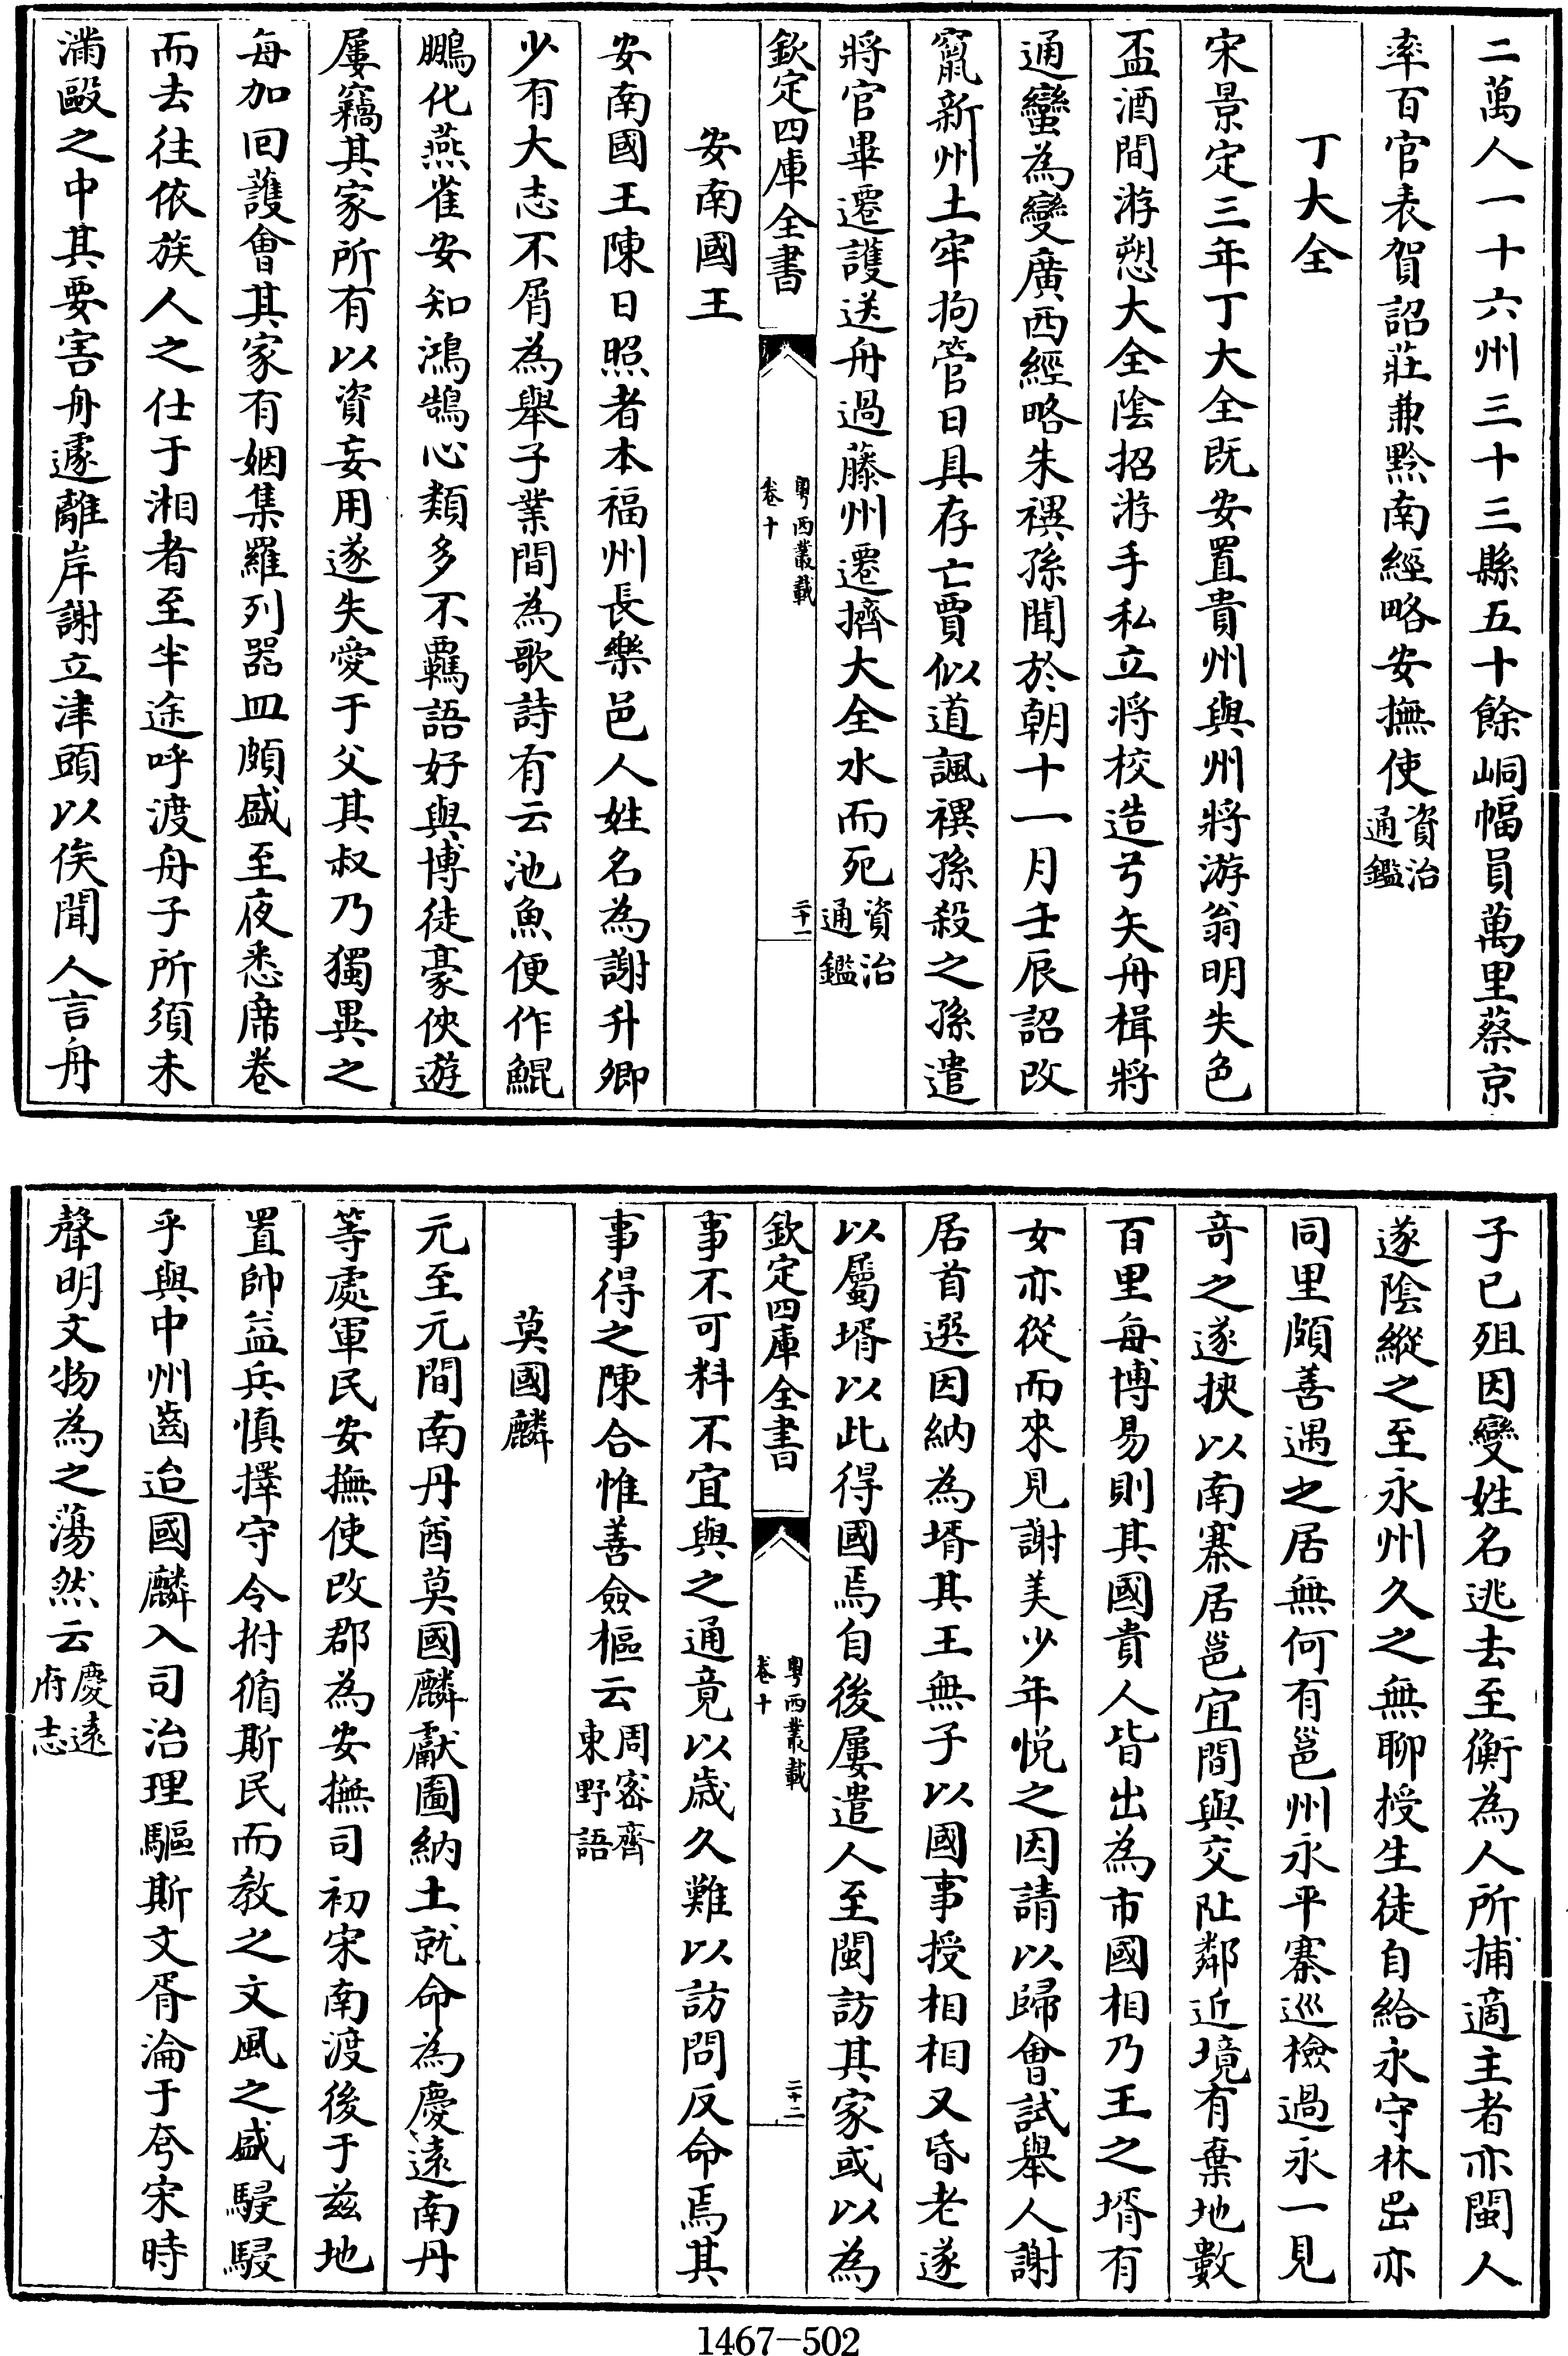 二萬人一十六州三十三縣五十餘峒幅員萬里蔡京
率百官表賀詔莊兼黔南經略安撫使資治通鑑
丁大全
宋景定三年丁大全既安置貴州與州將游翁明失色
盃酒間游愬大全陰招游手私立將校造弓矢舟楫將
通蠻為變廣西經略朱禩孫聞於朝十一月壬辰詔改
竄新州土牢拘管日具存亡賈似道諷禩孫殺之孫遣
將官畢遷護送舟過藤州遷擠大全水而死資治通鑑
欽定四庫全書
粵西叢載
卷十
二十一
安南國王
安南國王陳日照者本福州長樂邑人姓名為謝升卿
少有大志不屑為舉子業間為歌詩有云池魚便作鯤
鵬化燕雀安知鴻鵠心類多不羈語好與博徒豪俠遊
屢竊其家所有以資妄用遂失愛于父其叔乃獨異之
每加回護會其家有姻集羅列器皿頗盛至夜悉席卷
而去往依族人之仕于湘者至半途呼渡舟子所須未
滿毆之中其要害舟遽離岸謝立津頭以俟聞人言舟
子已殂因變姓名逃去至衡為人所捕適主者亦閩人
遂陰縱之至永州久之無聊授生徒自給永守林岊亦
同里頗善遇之居無何有邕州永平寨巡檢過永一見
奇之遂挾以南寨居邕宜間與交阯鄰近境有棄地數
百里每博易則其國貴人皆出為市國相乃王之壻有
女亦從而來見謝美少年悅之因請以歸會試舉人謝
居首選因納為壻其王無子以國事授相相又昏老遂
以屬壻以此得國焉自後屢遣人至閩訪其家或以為
欽定四庫全書
粵西叢載
卷十
二十二
事不可料不宜與之通竟以歲久難以訪問反命焉其
事得之陳合惟善僉樞云周密齊東野語
莫國麟
元至元間南丹酋莫國麟獻圖納土就命為慶遠南丹
等處軍民安撫使改郡為安撫司初宋南渡後于茲地
置帥益兵慎擇守令拊循斯民而教之文風之盛駸駸
乎與中州齒迨國麟入司治理驅斯文胥淪于夸宋時
聲明文物為之蕩然云慶遠府志
1467—502